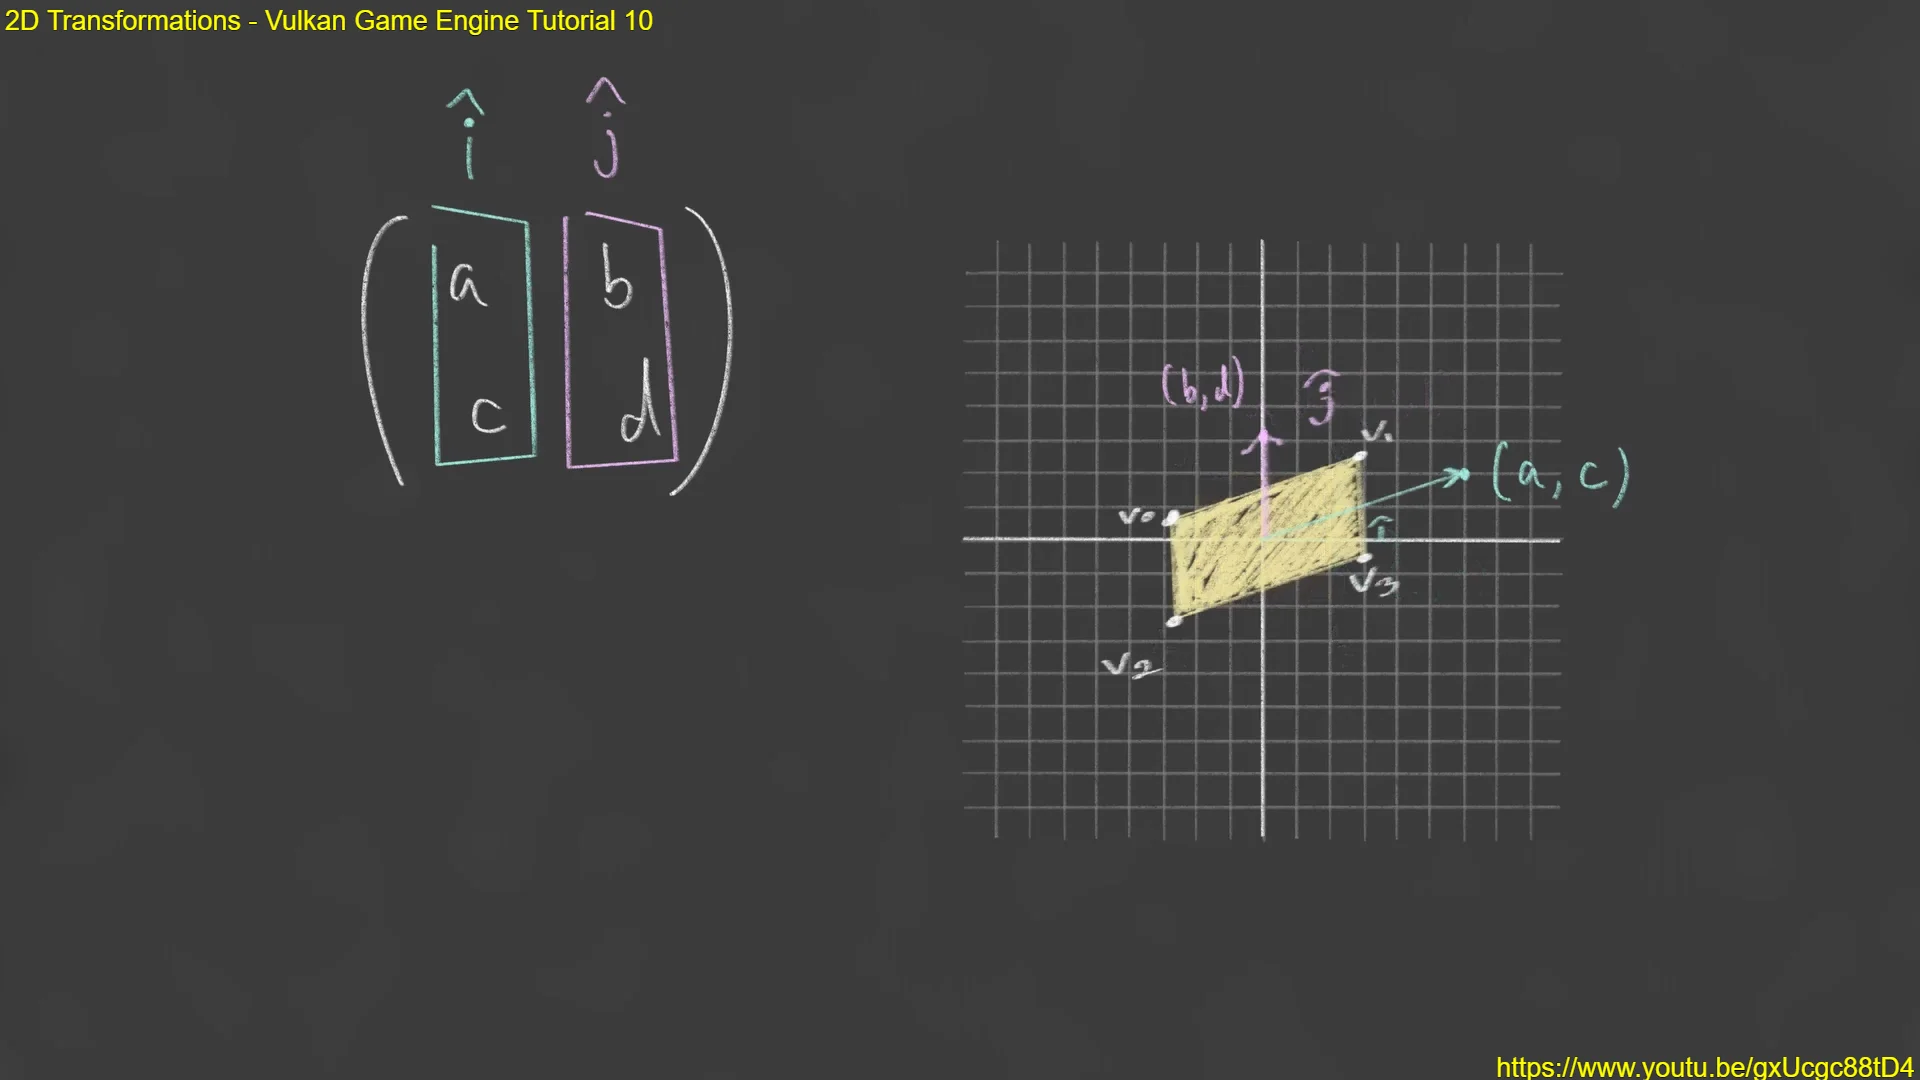 2D Transformations - Vulkan Game Engine Tutorial 10
î ĵ
a b
c d
(b,d) ĵ
v1
(a, c)
v0
î
v3
v2
https://www.youtu.be/gxUcgc88tD4